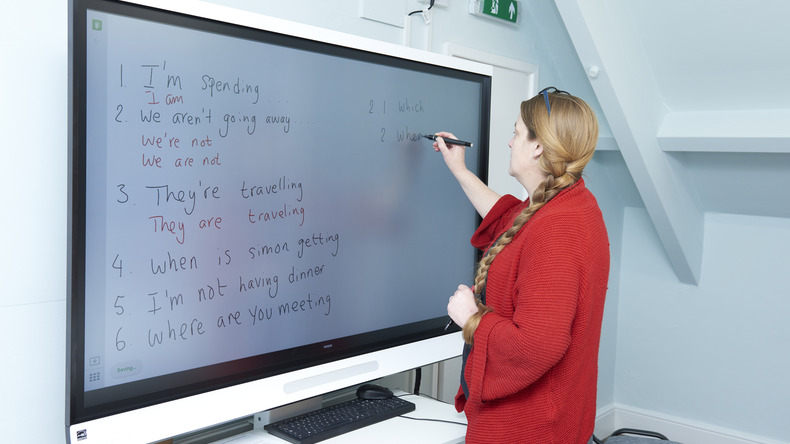 1 I'm spending
I am
2. We aren't going away
We're not
We are not
3. They're travelling
They are traveling
4. When is simon getting
5. I'm not having dinner
6. Where are you meeting
2. 1 which
2 when
Saving...